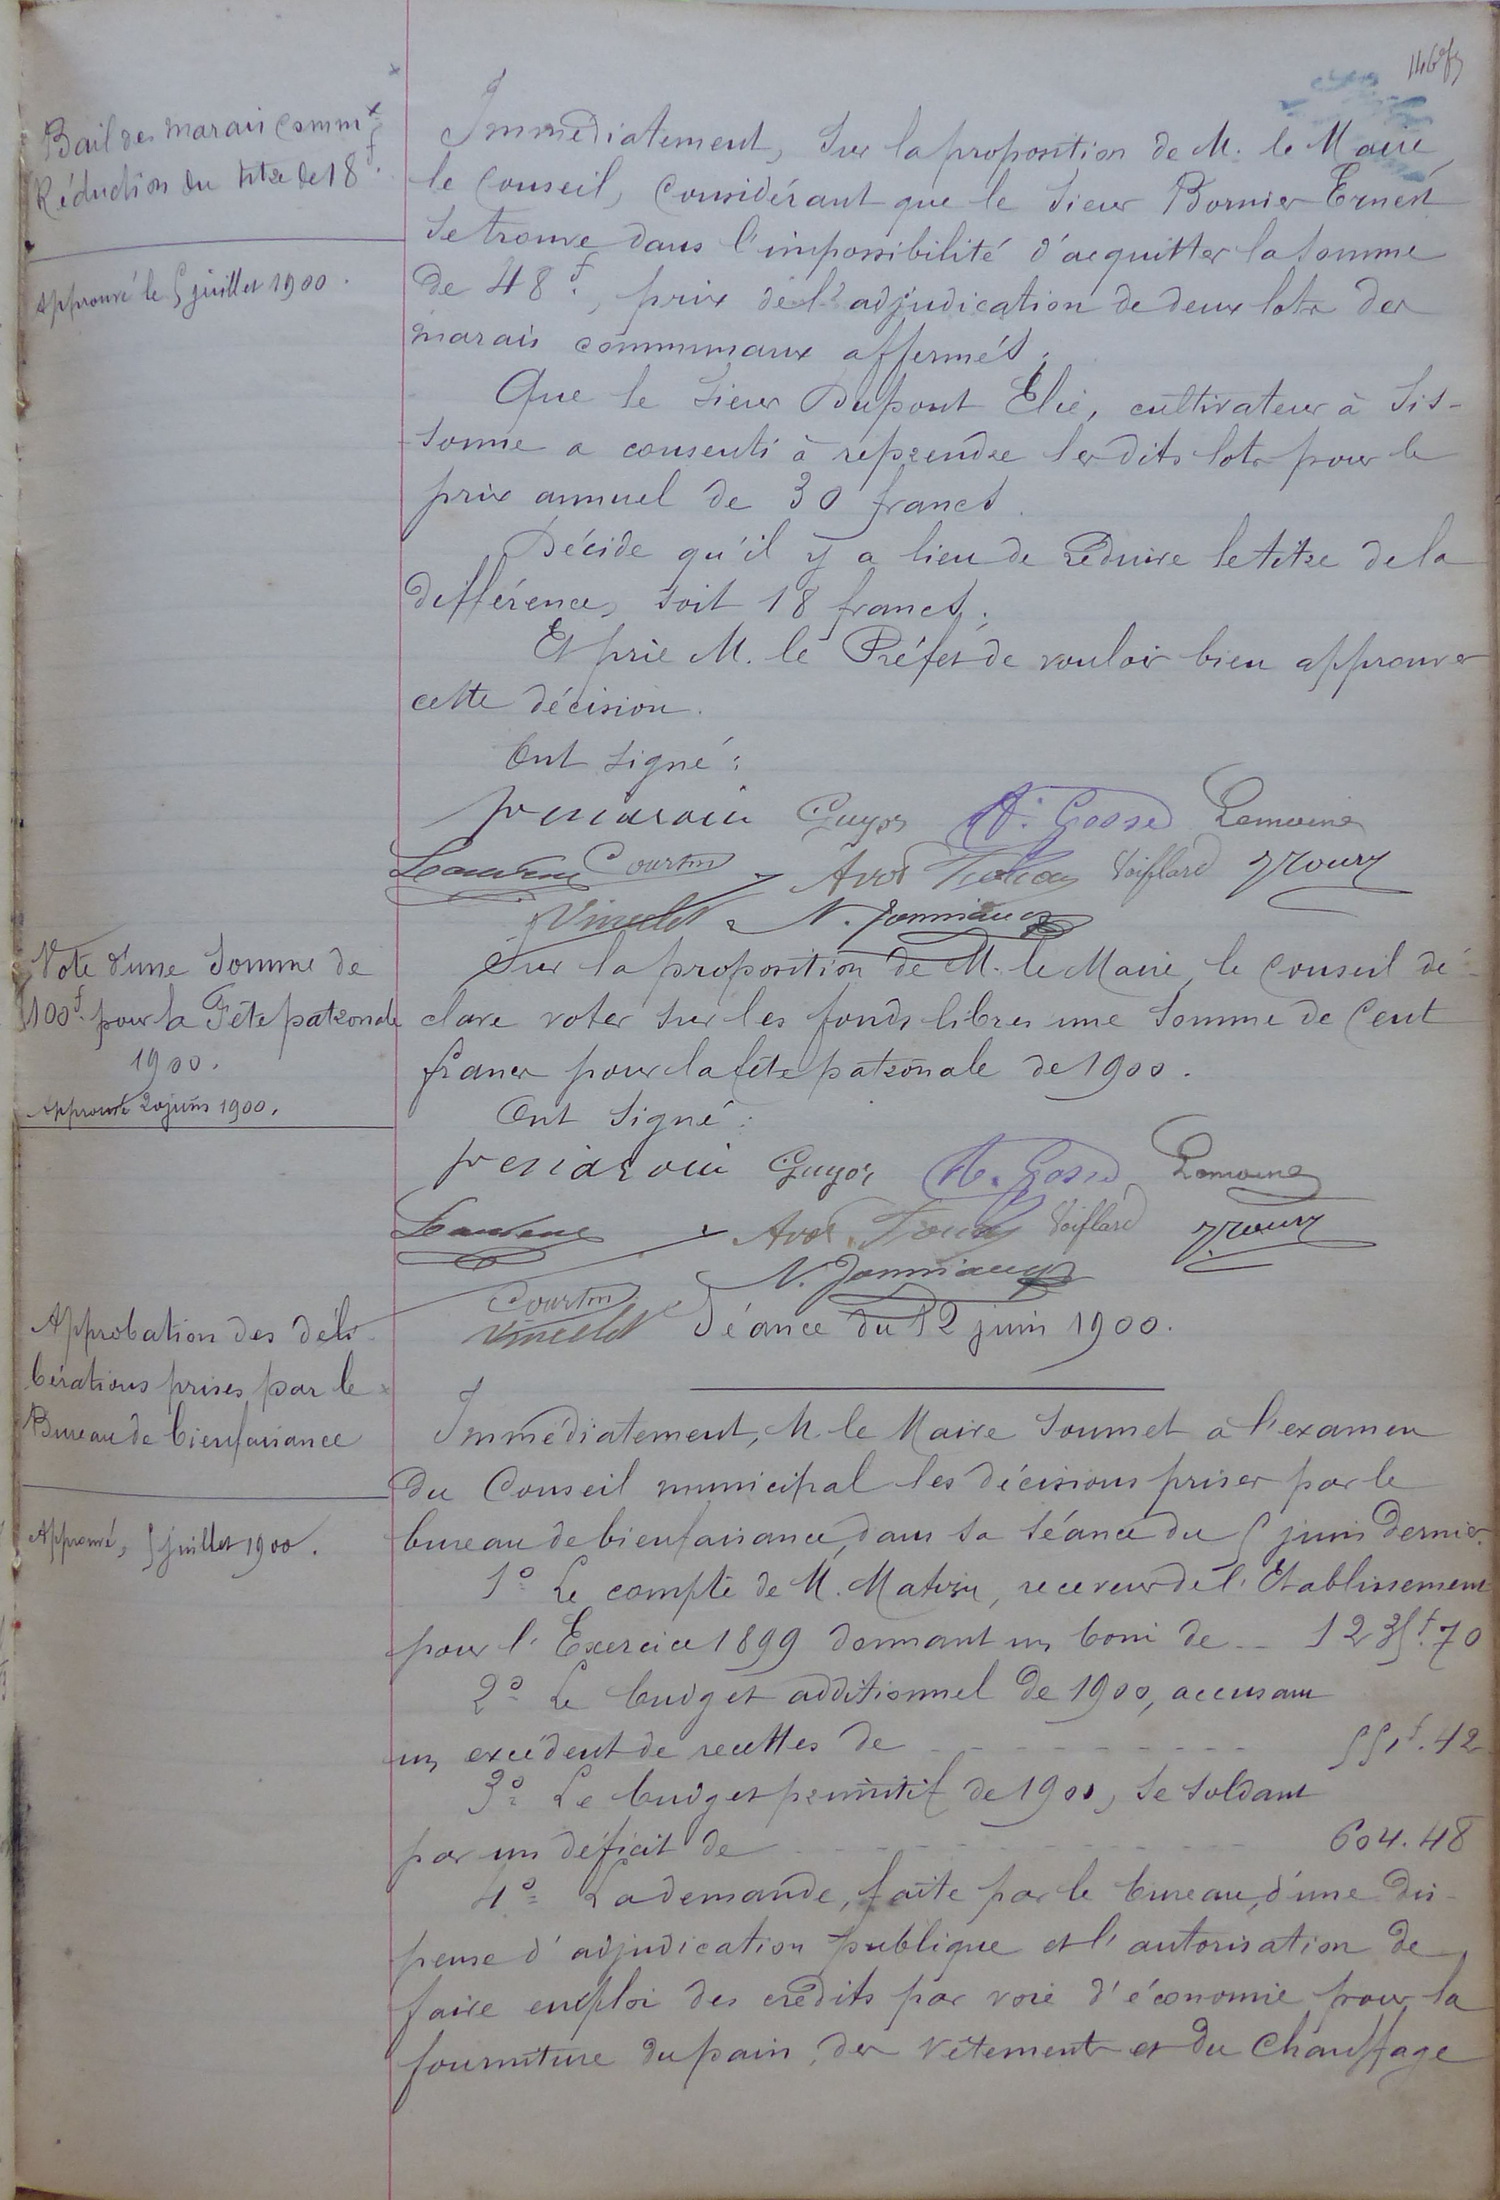 Bail des marais comm.x
Réduction du titre de 18 f.
Approuvé le 5 juillet 1900.
Immédiatement, sur la proposition de M. le Maire,
le Conseil, Considérant que le sieur Bornier Ernest
se trouve dans l'impossibilité d'acquitter la somme
de 48 f., prix de l'adjudication de deux lots des
marais communaux affermés ;
Que le sieur Dupont Elie, cultivateur à Sis-
sonne a consenti à reprendre les dits lots pour le
prix annuel de 30 francs.
Décide qu'il y a lieu de réduire le titre de la
différence, soit 18 francs ;
Et prie M. le Préfet de vouloir bien approuver
cette décision.
Ont signé :
Guyot A. Gosse Lemoine
Courtin Avot Voiflard Moury
Vincelet N. Jonniaux
Vote d'une somme de
100 f. pour la Fête patronale
1900.
Approuvé 20 juin 1900.
Sur la proposition de M. le Maire, le Conseil dé-
clare voter sur les fonds libres une somme de Cent
francs pour la fête patronale de 1900.
Ont signé :
Guyot A. Gosse Lemoine
Avot Voiflard Moury
N. Jonniaux
Courtin
Vincelet
Séance du 12 juin 1900.
Approbation des déli-
bérations prises par le
Bureau de bienfaisance
Approuvé, 5 juillet 1900.
Immédiatement, M. le Maire soumet à l'examen
du Conseil municipal les décisions prises par le
bureau de bienfaisance, dans sa séance du 5 juin dernier.
1° Le compte de M. receveur de l'Etablissement
pour l'Exercice 1899 donnant un boni de -- 1235 f.70
2° Le budget additionnel de 1900, accusant
un excédent de recettes de - - - - - - - 551 f.42
3° Le budget primitif de 1901, se soldant
par un déficit de - - - - - - - 604.48
4° La demande, faite par le bureau, d'une dis-
pense d'adjudication publique et l'autorisation de
faire emploi des crédits par voie d'économie pour la
fourniture du pain, des vêtements et du Chauffage